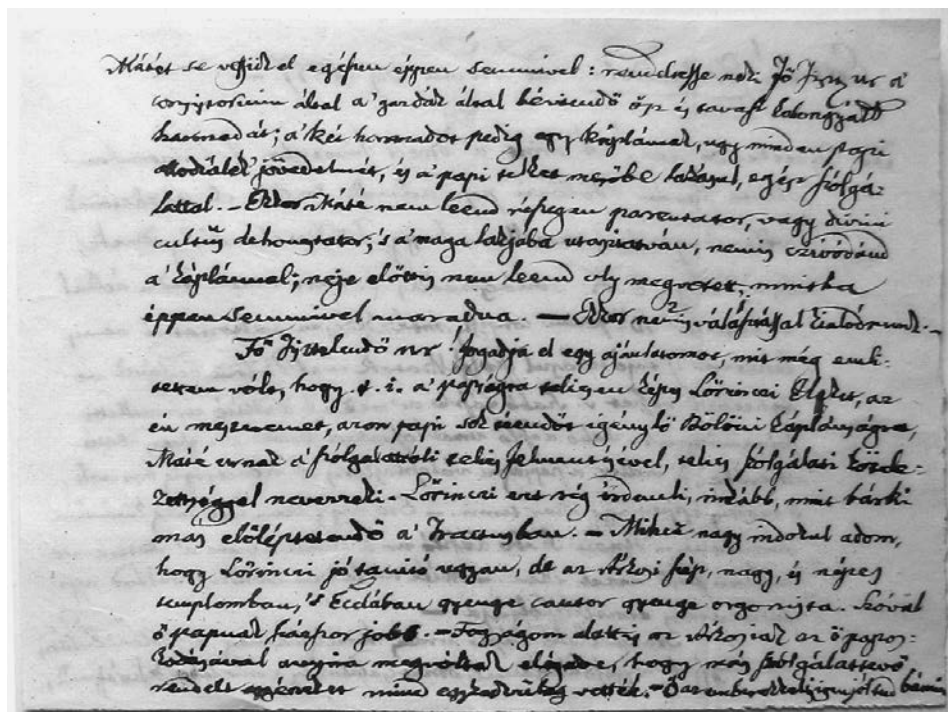 Mátét se veszitk el egészen éppen semmivel: rendeltesse neki Fő Tiszt. ur a'
consistorium által a' gazdák által béviendő ősz és tavasz kalongyáll
harmadát; a' két harmadot pedig egy káplánnak, ugy minden papi
jövedelmét, és a' papi telket nevébe lakásul, egész szólgá-
lattal. — Ekkor Máté nem leend részegen parentator, vagy divini
cultus dehonstator; 's a' maga lakjába utasítatván, nemis czivódand
a' káplánnal; neje előttis nem leend oly megvetett, mintha
éppen semmivel maradna. — Ekkor nemis válásással kinlódnunk. —
Fő Tisztelendő ur! fogadja el egy ajánlatomat, mit még emli-
tettem vólt, hogy t. i. a' papságra teljesen képes Lőrinczi Eleket, az
én meszteremet, azon papi sok teendőt igénylő Bölöni káplánságra,
Máté urnak a' szólgálattóli teljes felmentésével, teljes szolgálati kötele-
zettséggel nevezzeki. Lőrinczi ezt rég érdemli, inkább, mint bárki
más előléptetendő a' Tractusban. — Mihez nagy indokul adom,
hogy Lőrinczi jó tanitó ugyan, de az Árkosi szép, nagy, és népes
templomban, 's Ecclában gyenge cantor gyenge orgonista. Szóval
ő papnak százszor jobb. — Fogságom alattis az Árkosiak az ő papos-
kodásával annyira megvóltak elégedve, hogy más szolgálattevő
rendelt egyéneket mind egykedvűleg vették. —